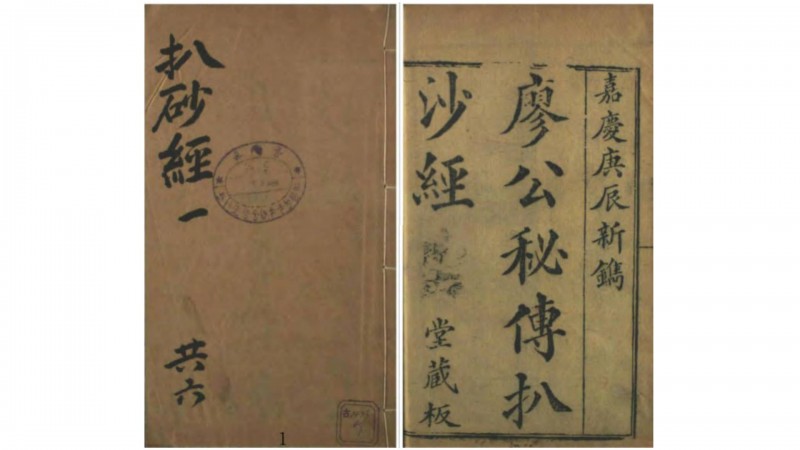 扒砂經一
共六
1
嘉慶庚辰新鐫
廖公秘傳扒
沙經
堂蔵板